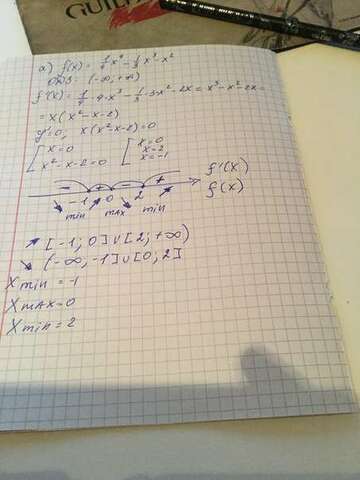 GUILT
а) f(x) = 1/4 x⁴ - 1/3 x³ - x²
ОДЗ: (-∞; +∞)
f'(x) = 1/4 · 4 · x³ - 1/3 · 3x² - 2x = x³ - x² - 2x =
= x(x² - x - 2)
y' = 0, x(x² x - 2) = 0
[ x = 0
x² - x - 2 = 0
[ x = 0
x = 2
x = -1
- + - + f'(x)
-1 0 2 f(x)
↘ min ↗ max ↘ min ↗
↗ [-1; 0] ∪ [2; +∞)
↘ (-∞; -1] ∪ [0, 2]
Xmin = -1
Xmax = 0
Xmin = 2